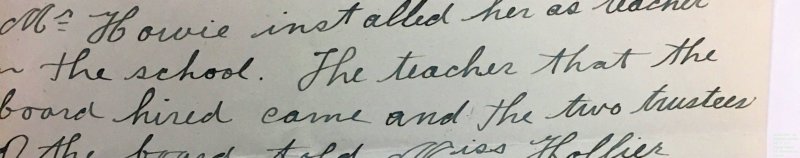 Mr Howie installed her as teacher
in the school. The teacher that the
board hired came and the two trustees
of the board told Miss Hollier